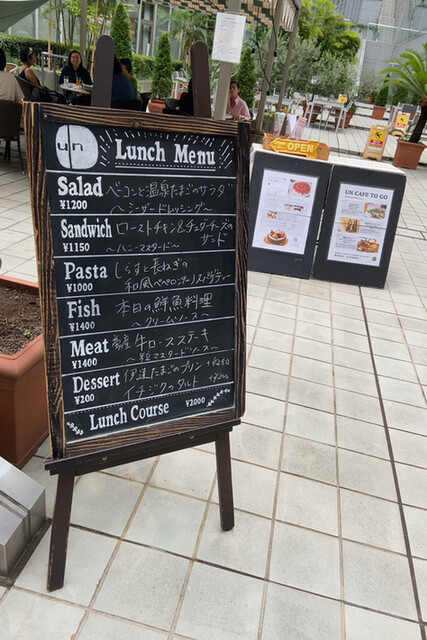 un
Lunch Menu
Salad ベーコンと温泉たまごのサラダ
¥1200 ～シーザードレッシング～
Sandwich ローストチキン&チェダーチーズの
サンド
¥1150 ～ハニーマスタード～
Pasta しらすと長ねぎの
¥1000 和風ペペロンチーノスパゲティー
Fish 本日の鮮魚料理
¥1400 ～クリームソース～
Meat 牛ロースステキ
¥1400 マスタードソース～
Dessert 伊達たまごのプリン
¥200 イチジクのタルト
Lunch Course ¥2000
OPEN
UN CAFE TO GO